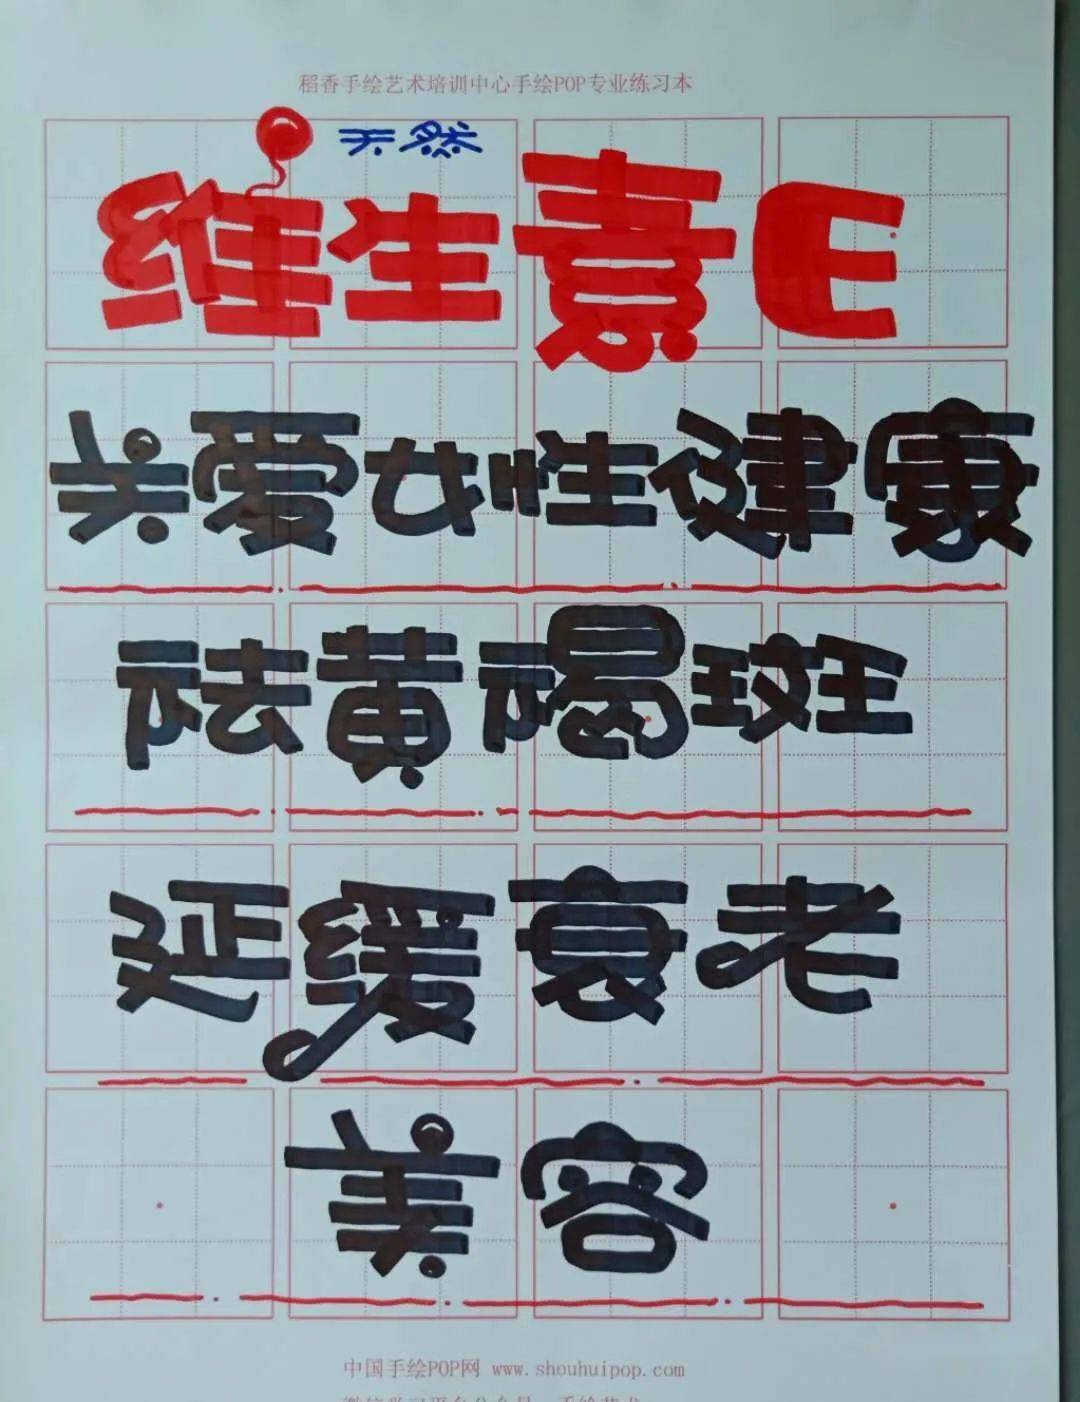 稻香手绘艺术培训中心手绘POP专业练习本
天然
维生素E
关爱女性健康
祛黄褐斑
延缓衰老
美容
中国手绘POP网 www.shouhuipop.com